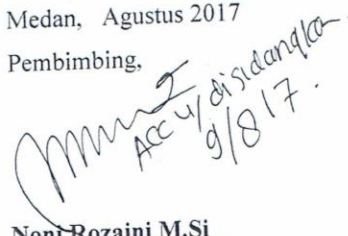 Medan, Agustus 2017
Pembimbing,
ACC u/ disidangkan
9/8/17.
Noni Rozaini M.Si